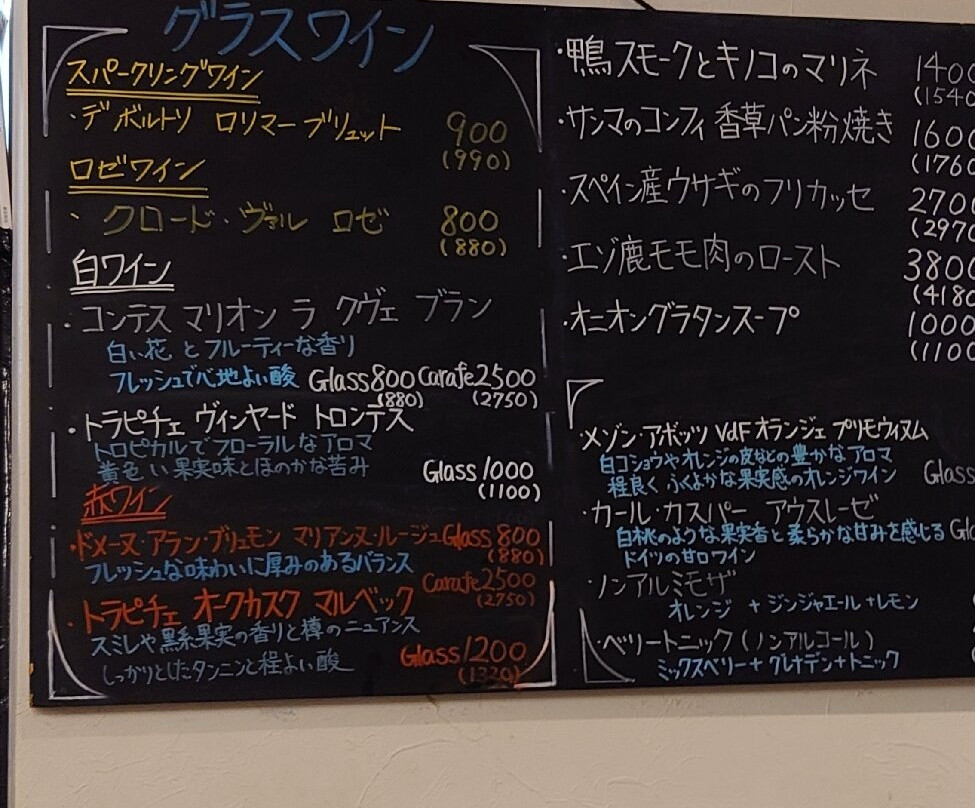 グラスワイン
スパークリングワイン
・デボルトリ ロリマーブリュット 900
(990)
ロゼワイン
・クロード・ヴァル ロゼ 800
(880)
白ワイン
・コンテス マリオン ラ クヴェ ブラン
白い花とフルーティーな香り
フレッシュで心地よい酸 Glass800 Carafe2500
(880) (2750)
・トラピチェ ヴィンヤード トロンテス
トロピカルでフローラルなアロマ
黄色い果実味とほのかな苦み Glass1000
(1100)
赤ワイン
・ドメーヌ・アラン・ブリュモン マリアンヌ・ルージュ Glass800
(880)
フレッシュな味わいに厚みのあるバランス
Carafe2500
(2750)
・トラピチェ オークカスク マルベック
スミレや黒系果実の香りと樽のニュアンス
しっかりとしたタンニンと程よい酸 Glass1200
(1320)
・鴨スモークとキノコのマリネ 1400
(1540
・サンマのコンフィ 香草パン粉焼き 1600
(1760
・スペイン産ウサギのフリカッセ 2700
(2970
・エゾ鹿モモ肉のロースト 3800
(4180
・オニオングラタンスープ 1000
(1100
・メゾン・アボッツ VdF オランジェ プリモウィヌム
白コショウやオレンジの皮などの豊かなアロマ
程良くふくよかな果実感のオレンジワイン Glass
・カール・カスパー アウスレーゼ
白桃のような果実香と柔らかな甘みを感じる
ドイツの甘口ワイン
・ノンアルミモザ
オレンジ +ジンジャエール+レモン
・ベリートニック(ノンアルコール)
ミックスベリー+グレナデン+トニック